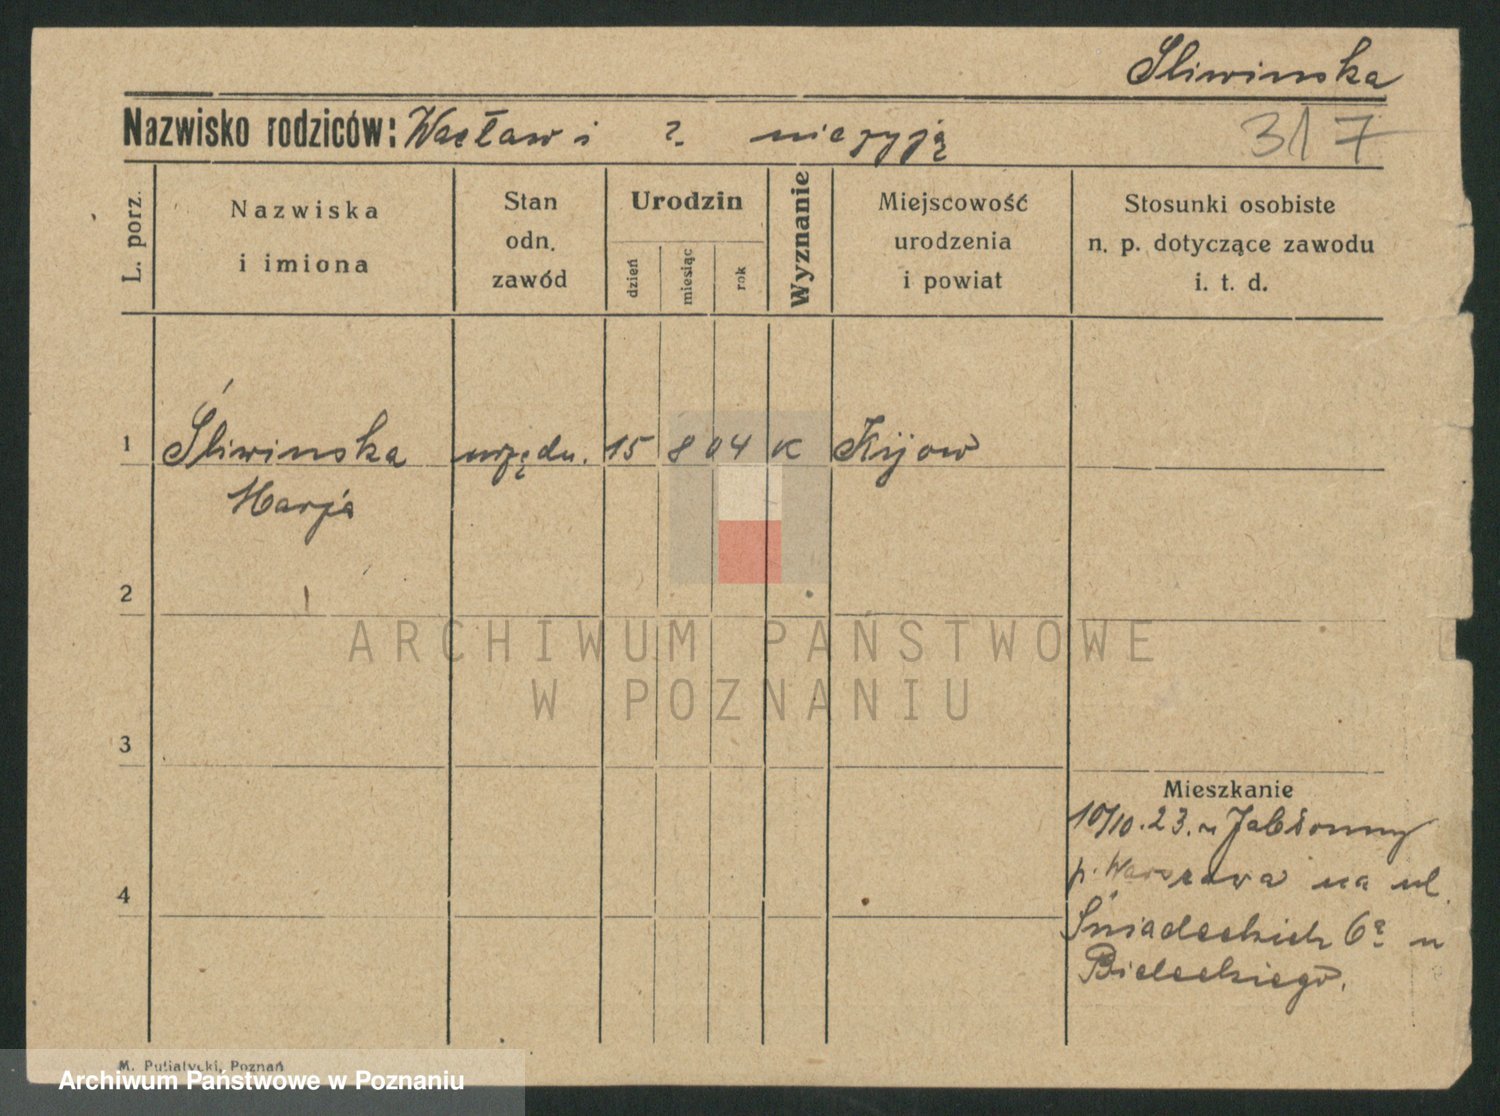 Śliwinska
Nazwisko rodziców: Wacław i ? nie żyją
317
L. porz.
Nazwiska
i imiona
Stan
odn.
zawód
Urodzin
dzień
miesiąc
rok
Wyznanie
Miejscowość
urodzenia
i powiat
Stosunki osobiste
n. p. dotyczące zawodu
i. t. d.
1 Śliwinska urzędn. 15 8 04 K Kijow
Marja
2
ARCHIWUM PAŃSTWOWE
W POZNANIU
3
Mieszkanie
10/10.23. z Jabłonny
p. Warszawa na ul.
4
Śniadeckich 6a u
Bieleckiego.
M. Putiatycki, Poznań
Archiwum Państwowe w Poznaniu